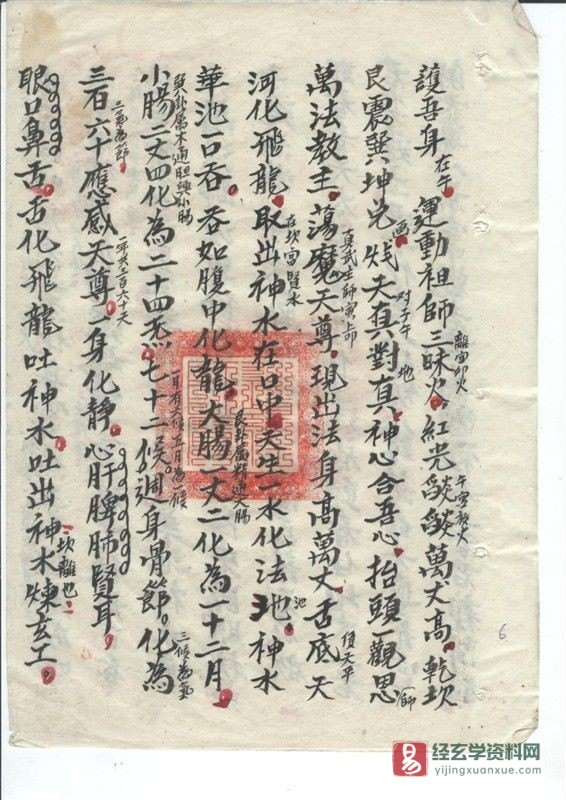 護吾身在午運動祖師三昧火離宙卯火紅光燄燄萬丈高午宮放火乾坎
艮震巽坤兌画烖夫真對真对子午地神心合吾心抬頭一觀思師
萬法教主蕩魔天尊真武主師寅上卯現出法身高萬丈舌底天頂天平
河化飛龍取出神水在坎宮賢水在口中天生一水化法地池神水
華池一口吞吞如腹中化龍大腸一丈二艮卦屬通大腸化為一十二月
小腸二丈四巽卦属木通胆與小腸化為二十四炁七十二候一月有六候五日為一候週身骨節化為三候為氣
三百六十三氣為節應感天尊一年共三百六十天一身化静心肝脾肺賢耳
眼口鼻舌舌化飛龍吐神水吐出神水煉玄工坎離也
6
经玄学资料网
yijingxuanxue.com